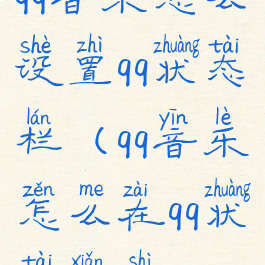 99音乐怎么
shè zhì zhuàng tài
设置99状态
lán yīn lè
栏（99音乐
zěn me zài zhuàng
怎么在99状
tài xiǎn shì